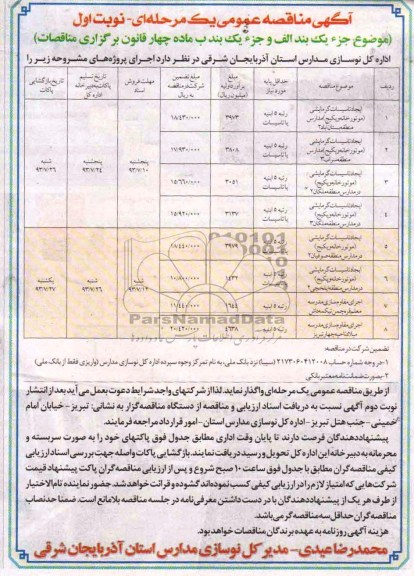 آگهی مناقصه عمومی یک مرحله‌ای - نوبت اول
(موضوع جزء یک بند الف و جزء یک بند ب ماده چهار قانون برگزاری مناقصات)
اداره کل نوسازی مدارس استان آذربایجان شرقی در نظر دارد اجرای پروژه‌های مشروحه زیر را
ردیف موضوع مناقصه حداقل پایه مورد نیاز مبلغ برآورد اولیه (میلیون ریال) مبلغ تضمین شرکت در مناقصه به ریال مهلت فروش اسناد تاریخ تسلیم پاکات به دبیرخانه اداره کل تاریخ بازگشایی پاکات
۱ ایجاد تاسیسات گرمایشی (موتورخانه و پکیج) مدارس منطقه بستان‌آباد ۲ رتبه ۵ ابنیه یا تاسیسات ۳۹۷۳ ۱۸/۴۳۰/۰۰۰
۲ ایجاد تاسیسات گرمایشی (موتورخانه و پکیج) مدارس منطقه سراب ۳ رتبه ۵ ابنیه یا تاسیسات ۳۸۰۸ ۱۷/۹۳۰/۰۰۰
۳ ایجاد تاسیسات گرمایشی (موتورخانه و پکیج) در مدارس منطقه ملکان ۲ رتبه ۵ ابنیه یا تاسیسات ۳۰۵۱ ۱۵/۶۶۰/۰۰۰
۴ ایجاد تاسیسات گرمایشی (موتورخانه و پکیج) در مدارس منطقه ملکان ۳ رتبه ۵ ابنیه یا تاسیسات ۳۱۳۷ ۱۵/۹۲۰/۰۰۰
پنجشنبه ۹۳/۷/۱۰ پنجشنبه ۹۳/۷/۲۴ شنبه ۹۳/۷/۲۶
۵ ایجاد تاسیسات گرمایشی (موتورخانه و پکیج) در مدارس منطقه صوفیان ۲ رتبه ۵ ابنیه یا تاسیسات ۳۹۷۹ ۱۸/۴۴۰/۰۰۰
۶ ایجاد تاسیسات گرمایشی (موتورخانه و پکیج) در مدارس منطقه رتبه ۵ ابنیه ۱۴۳۲ ۱۰/۸۰۰/۰۰۰
۷ اجرای مقاوم‌سازی مدرسه رتبه ۵ ابنیه ۱۶۴۴ ۱۱/۴۴۰/۰۰۰
۸ اجرای مقاوم‌سازی مدرسه تبریز رتبه ۵ ابنیه ۴۶۳۸ ۲۰/۴۲۰/۰۰۰
شنبه ۹۳/۷/۱۲ شنبه ۹۳/۷/۲۶ یکشنبه ۹۳/۷/۲۷
ParsNamadData
تضمین شرکت در مناقصه:
۱- جزء وجه شماره حساب ۲۱۷۳۰۶۰۴۱۲۰۰۸ (سیبا) نزد بانک ملی، به نام تمرکز وجوه سپرده اداره کل نوسازی مدارس (واریزی فقط از بانک ملی)
۲- بصورت ضمانت‌نامه معتبر بانکی
از طریق مناقصه عمومی یک مرحله‌ای واگذار نماید. لذا از شرکتهای واجد شرایط دعوت بعمل می‌آید بعد از انتشار
نوبت دوم آگهی نسبت به دریافت اسناد ارزیابی و مناقصه از دستگاه مناقصه‌گزار به نشانی: تبریز - خیابان امام
خمینی - جنب هتل تبریز - اداره کل نوسازی مدارس استان - امور قرارداد مراجعه فرمایند.
پیشنهاددهندگان فرصت دارند تا پایان وقت اداری مطابق جدول فوق پاکتهای خود را به صورت سربسته و
محرمانه به دبیرخانه این اداره کل تحویل و رسید دریافت نمایند. بازگشایی پاکات واصله جهت بررسی اسناد ارزیابی
کیفی مناقصه‌گران مطابق با جدول فوق ساعت ۱۰ صبح شروع و پس از ارزیابی مناقصه‌گران پاکت پیشنهاد قیمت
شرکت‌هایی که امتیاز لازم را در ارزیابی کیفی کسب نموده‌اند گشوده و قرائت خواهد شد. حضور نماینده تام‌الاختیار
از طرف هر یک از پیشنهاددهندگان با در دست داشتن معرفی‌نامه در جلسه مناقصه بلامانع است. ضمنا حد نصاب
مناقصه‌گران حداقل سه مناقصه‌گر می‌باشد.
هزینه آگهی روزنامه به عهده برندگان مناقصات خواهد بود.
محمدرضا عیدی - مدیر کل نوسازی مدارس استان آذربایجان شرقی